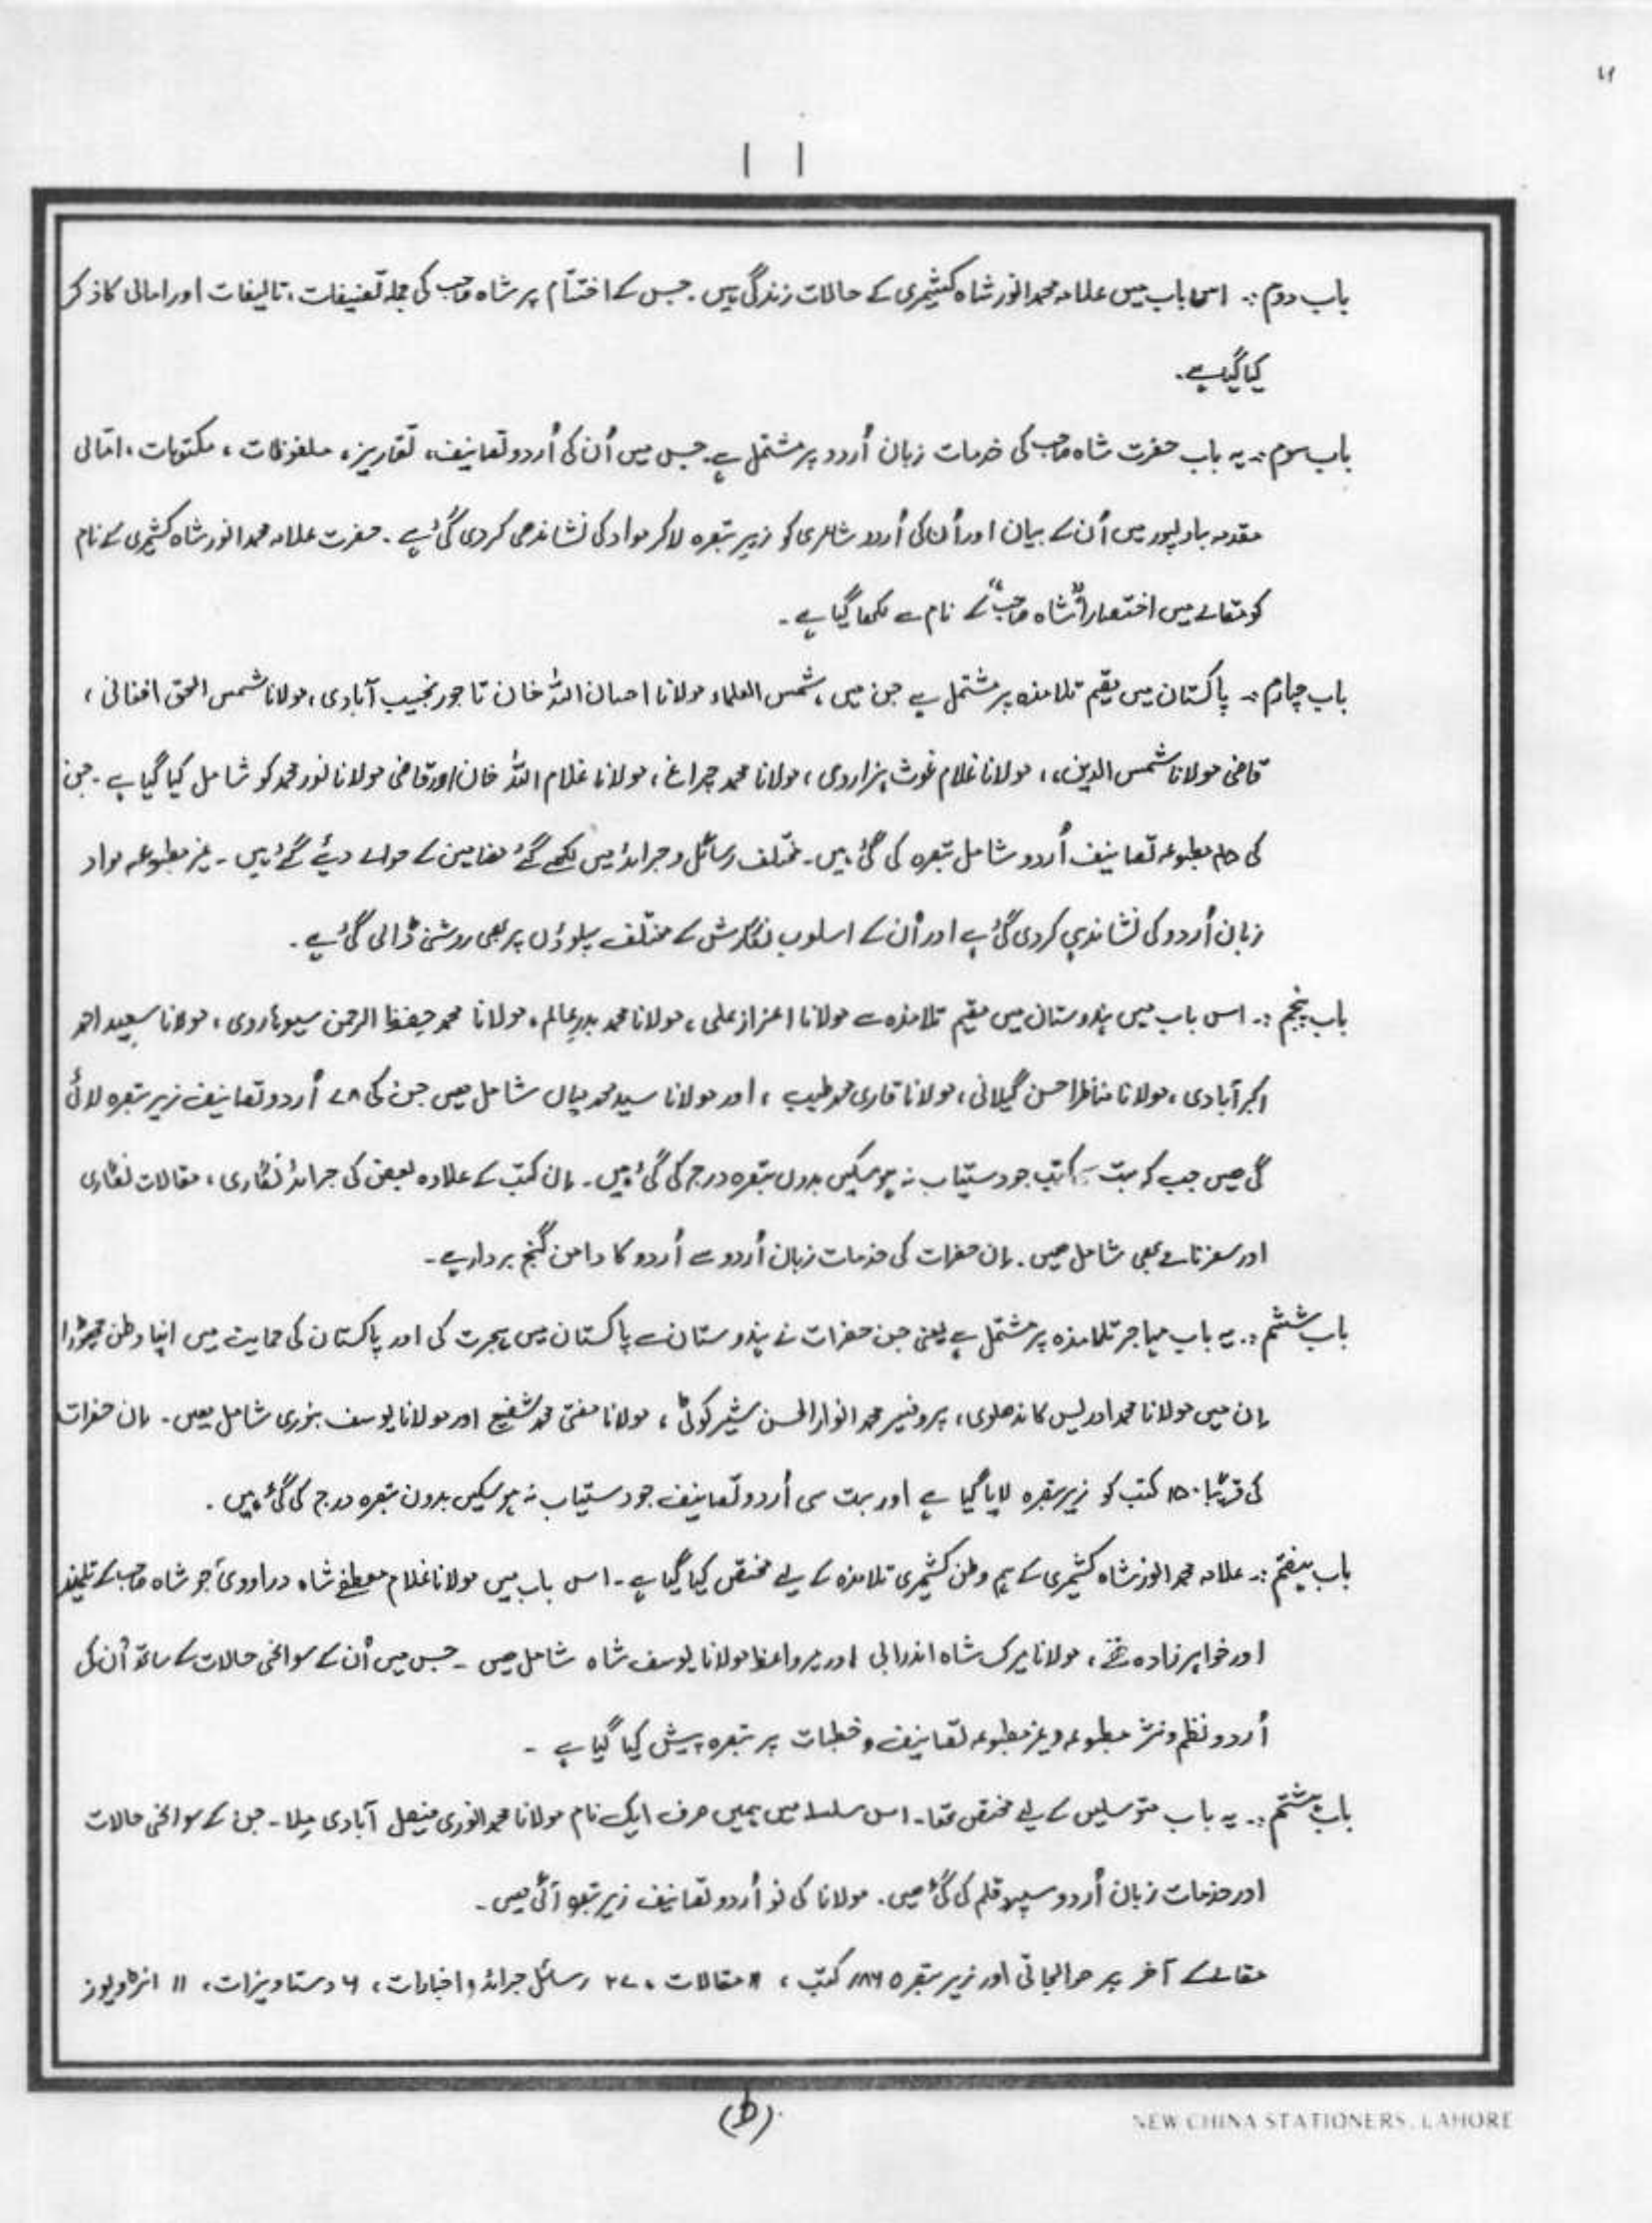 ۱۱
باب دوم :۔ اس باب میں علامہ محمد انور شاہ کشمیری کے حالات زندگی ہیں۔ جس کے اختتام پر شاہ صاحب کی جملہ تصنیفات، تالیفات اور امالی کا ذکر
کیا گیا ہے۔
باب سوم :۔ یہ باب حضرت شاہ صاحب کی خدمات زبان اُردو پر مشتمل ہے۔ جس میں اُن کی اُردو تصانیف، تقاریر، ملفوظات، مکتوبات، امالی
مقدمہ بہاولپور میں اُن کے بیان اور اُن کی اُردو شاعری کو زیر تبصرہ لا کر مواد کی نشاندہی کر دی گئی ہے۔ حضرت علامہ محمد انور شاہ کشمیری کے نام
کو مقالے میں اختصاراً "شاہ صاحب" کے نام سے لکھا گیا ہے۔
باب چہارم :۔ پاکستان میں مقیم تلامذہ پر مشتمل ہے جن میں، شمس العلماء مولانا احسان اللہ خان تاجور نجیب آبادی، مولانا شمس الحق افغانی،
قاضی مولانا شمس الدین، مولانا غلام غوث ہزاروی، مولانا محمد چراغ، مولانا غلام اللہ خان اور قاضی مولانا نور محمد کو شامل کیا گیا ہے۔ جن
کی مطبوعہ تصانیف اُردو شامل تبصرہ کی گئی ہیں۔ مختلف رسائل و جرائد میں لکھے گئے مضامین کے حوالے دیئے گئے ہیں۔ غیر مطبوعہ مواد
زبان اُردو کی نشاندہی کر دی گئی ہے اور اُن کے اسلوب نگارش کے مختلف پہلوؤں پر بھی روشنی ڈالی گئی ہے۔
باب پنجم :۔ اس باب میں ہندوستان میں مقیم تلامذہ سے مولانا اعزاز علی، مولانا محمد بدر عالم، مولانا محمد حفظ الرحمن سیوہاروی، مولانا سعید احمد
اکبر آبادی، مولانا مناظر احسن گیلانی، مولانا قاری محمد طیب، اور مولانا سید محمد میاں شامل ہیں جن کی ۷۸ اُردو تصانیف زیر تبصرہ لائی
گئی ہیں جب کہ بہت سی کتب جو دستیاب نہ ہو سکیں بدون تبصرہ درج کی گئی ہیں۔ ان کتب کے علاوہ بعض کی جرائد نگاری، مقالات نگاری
اور سفرنامے بھی شامل ہیں۔ ان حضرات کی خدمات زبان اُردو سے اُردو کا دامن گنج بردار ہے۔
باب ششم :۔ یہ باب مہاجر تلامذہ پر مشتمل ہے یعنی جن حضرات نے ہندوستان سے پاکستان میں ہجرت کی اور پاکستان کی حمایت میں اپنا وطن چھوڑا
ان میں مولانا محمد ادریس کاندھلوی، پروفیسر محمد انوار الحسن شیرکوٹی، مولانا مفتی محمد شفیع اور مولانا یوسف بنوری شامل ہیں۔ ان حضرات
کی قریباً ۱۵۰ کتب کو زیر تبصرہ لایا گیا ہے اور بہت سی اُردو تصانیف جو دستیاب نہ ہو سکیں بدون تبصرہ درج کی گئی ہیں۔
باب ہفتم :۔ علامہ محمد انور شاہ کشمیری کے ہم وطن کشمیری تلامذہ کے لیے مختص کیا گیا ہے۔ اس باب میں مولانا غلام مصطفٰے شاہ جو شاہ صاحب کے تلمیذ
اور خواہر زادہ تھے، مولانا میرک شاہ اندرابی اور میر واعظ مولانا یوسف شاہ شامل ہیں۔ جس میں اُن کے سوانحی حالات کے ساتھ اُن کی
اُردو نظم و نثر مطبوعہ و غیر مطبوعہ تصانیف و خطبات پر تبصرہ پیش کیا گیا ہے۔
باب ہشتم :۔ یہ باب متوسلین کے لیے مختص تھا۔ اس سلسلہ میں ہمیں صرف ایک نام مولانا محمد انوری فیصل آبادی ملا۔ جن کے سوانحی حالات
اور خدمات زبان اُردو سپرد قلم کی گئی ہیں۔ مولانا کی نو اُردو تصانیف زیر تبصرہ آئی ہیں۔
مقالے کے آخر پر حوالجاتی اور زیر تبصرہ کتب، مقالات، ۲۷۰ رسائل جرائد و اخبارات، ۶ دستاویزات، ۱۱ انٹرویوز
(ط)
NEW CHINA STATIONERS, LAHORE